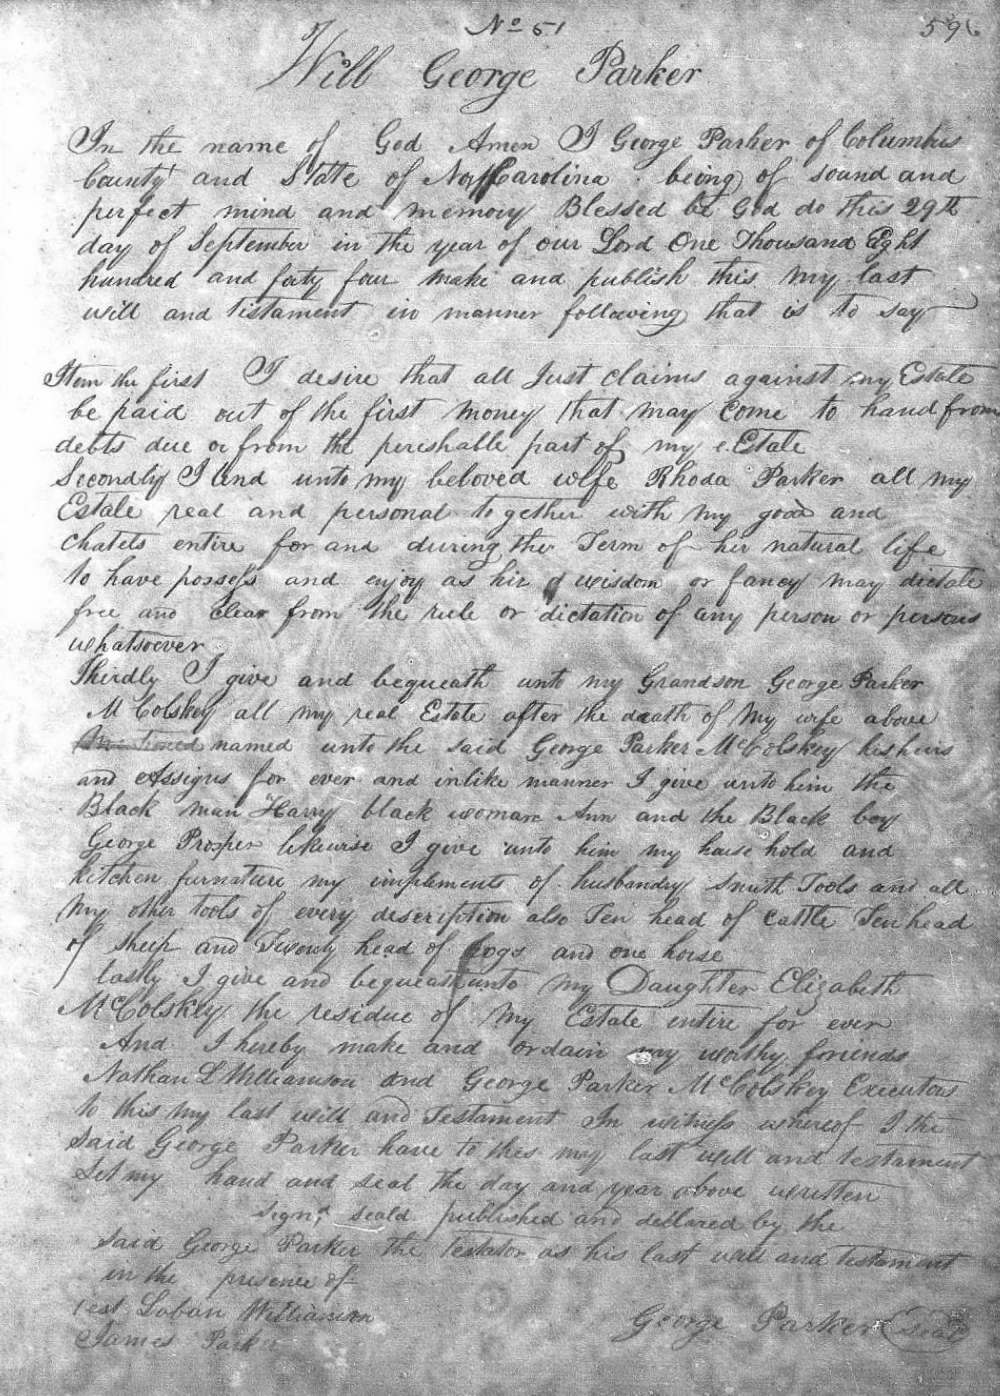 No 51
596
Will George Parker
In the name of God Amen I George Parker of Columbus
County and State of North Carolina being of sound and
perfect mind and memory Blessed be God do this 29th
day of September in the year of our Lord One Thousand Eght
hundred and forty four make and publish this my last
will and Tistament in manner following that is to say
Item the first I desire that all Just claims against my Estate
be paid out of the first money that may come to hand from
debts due or from the pereshable part of my Etate
Secondly I lend unto my beloved wife Rhoda Parker all my
Estate real and personal together with my good and
Chatels entire for and during the Term of her natural life
to have possess and enjoy as her wisdom or fancy may dictate
free and clear from the rule or dictation of any person or persons
whatsoever
Thirdly I give and bequeath unto my Grandson George Parker
McColskey all my real Estate after the death of my wife above
named unto the said George Parker McColskey his heirs
and Assigns for ever and in like manner I give unto him the
Black man Harry black woman Ann and the Black boy
George Prosper likewise I give unto him my house hold and
kitchen furnature my impliments of husbandry Smith Tools and all
my other tools of every discription also Ten head of cattle Ten head
of sheep and Twenty head of hogs and one horse
lastly I give and bequeath unto my Daughter Elizabeth
McColskey the residue of my Estate entire for ever
And I hereby make and ordain my worthy friends
Nathan L Williamson and George Parker McColskey Executors
to this my last will and Testament In witness whereof I the
said George Parker have to this my last will and testament
set my hand and seal the day and year above written
Signd seald published and declared by the
said George Parker the Testator as his last will and Testament
in the presence of
Test Laban Williamson
James Parker
George Parker (seal)